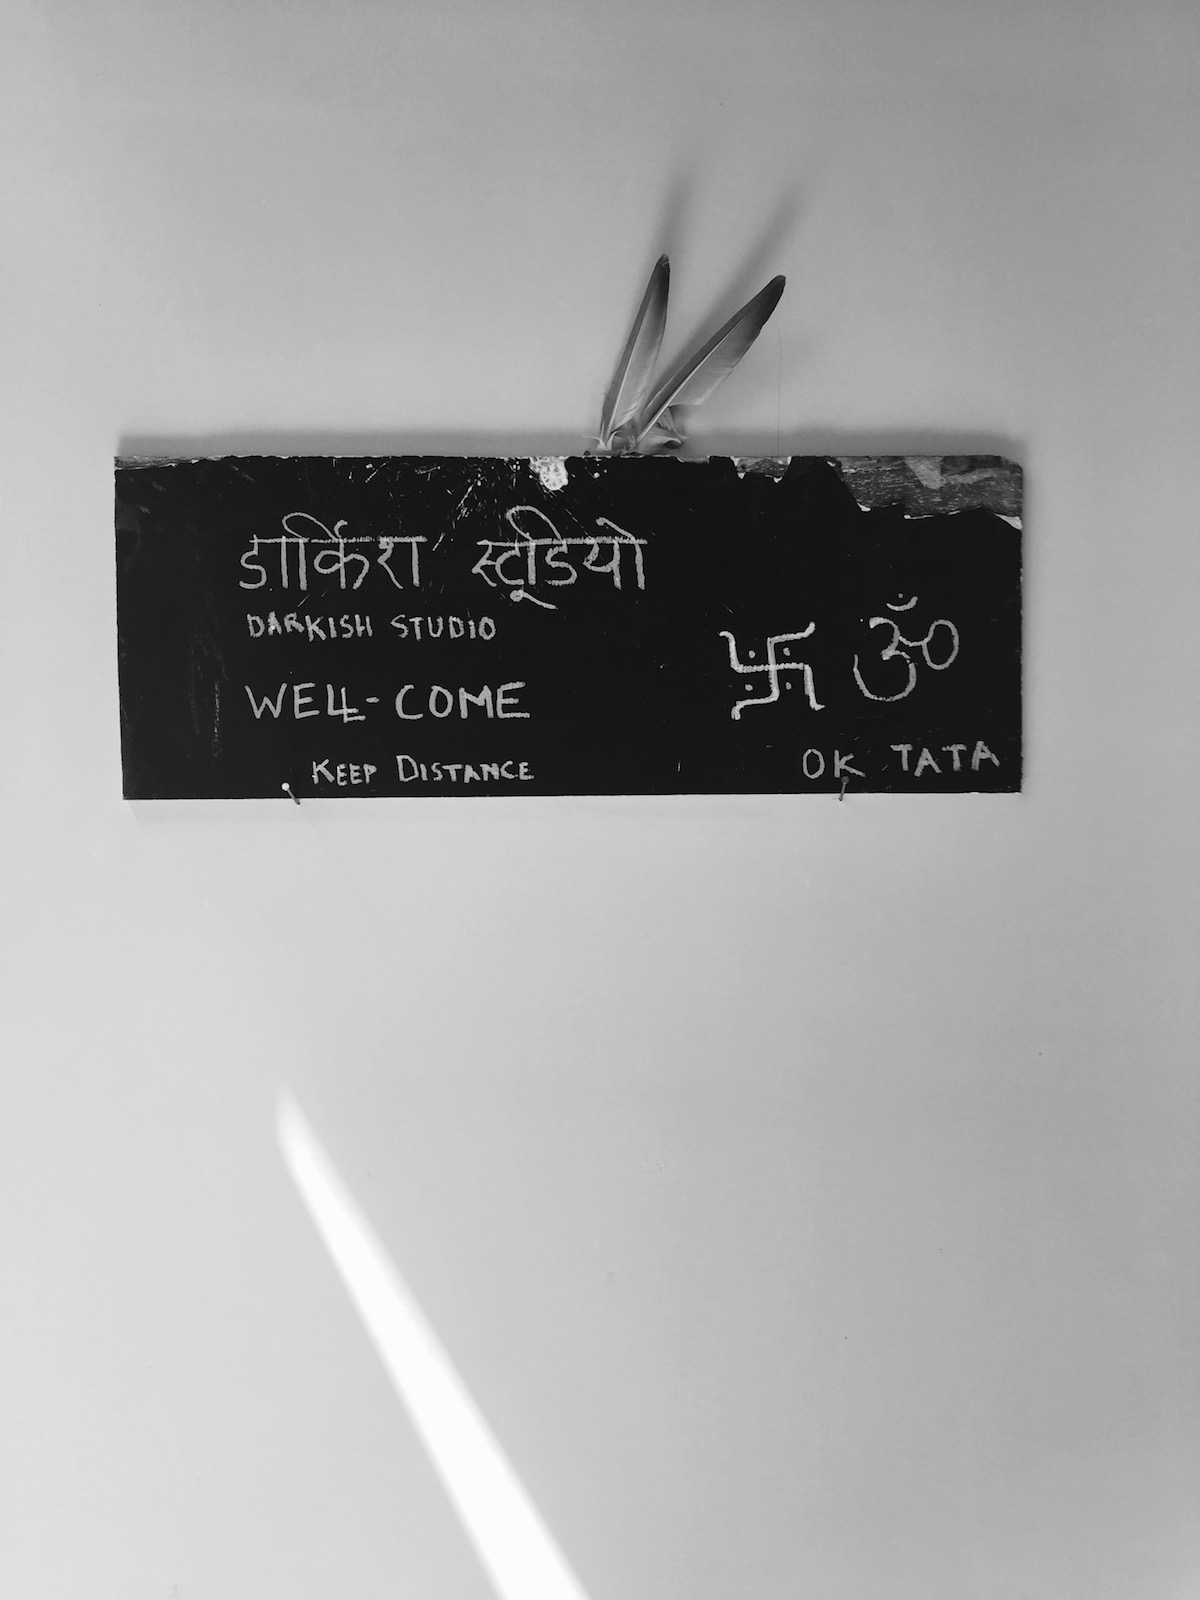 डार्किश स्टूडियो
DARKISH STUDIO
WELL-COME
KEEP DISTANCE
卐 ॐ
OK TATA